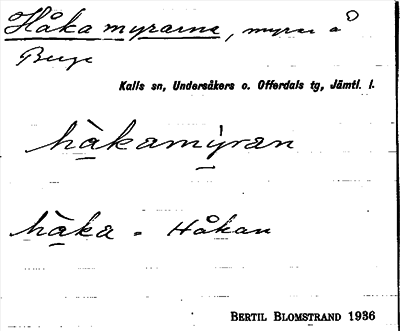 Håkamyrarna, myrar å
Berge
Kalls sn, Undersåkers o. Offerdals tg, Jämtl. l.
hàkamỳran
hàka - Håkan
BERTIL BLOMSTRAND 1936